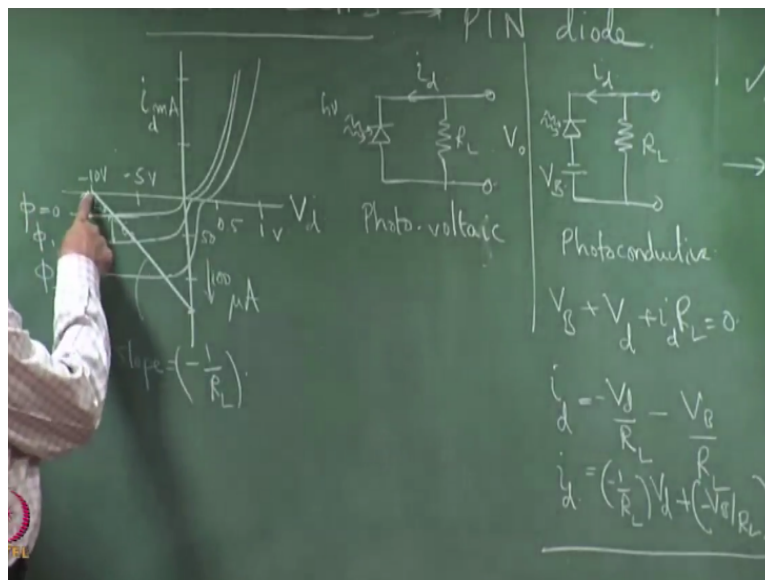 → PIN diode
i_d mA
-10V -5V
ϕ=0
ϕ₁
ϕ
50 0.5 1V V_d
100
μA
slope = (-1/R_L).
i_d
hν
R_L
V_o
Photo-voltaic
i_d
R_L
V_B
Photoconductive
V_B + V_d + i_d R_L = 0.
i_d = -V_d/R_L - V_B/R_L
i_d = (-1/R_L)V_d + (-V_B/R_L)